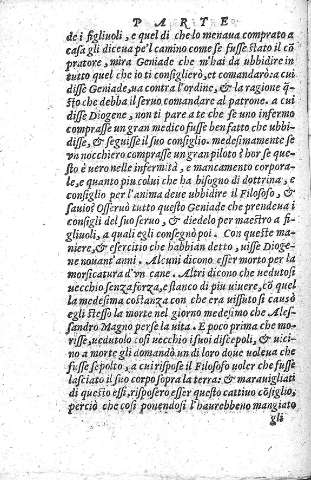 PARTE
de i figliuoli, e quel dì che lo menaua comprato a
casa gli diceua pe'l camino come se fusse stato il cõ
pratore, mira Geniade che m'hai da ubbidire in
tutto quel che io ti consiglierò, et comandarò: a cui
disse Geniade, ua contra l'ordine, & la ragione q̃-
sto che debba il seruo comandare al patrone. a cui
disse Diogene, non ti pare a te che se uno infermo
comprasse un gran medico fusse ben fatto che ubbi-
disse, & seguisse il suo consiglio. medesimamente se
vn nocchiero comprasse un gran piloto? hor se que-
sto è uero nelle infermità, e mancamento corpora-
le, e quanto piu colui che ha bisogno di dottrina, e
consiglio per l'anima deue ubbidire il Filosofo, &
sauio? Osseruò tutto questo Geniade che prendeua i
consigli del suo seruo, & diedelo per maestro a fi-
gliuoli, a quali egli consegnò poi. Con queste ma-
niere, & esercitio che habbian detto, uisse Dioge-
ne nouant'anni. Alcuni dicono esser morto per la
morsicatura d'vn cane. Altri dicono che uedutosi
uecchio senza forza, e stanco di piu uiuere, cõ quel
la medesima costanza con che era uissuto si causò
egli stesso la morte nel giorno medesimo che Ales-
sandro Magno perse la vita. E poco prima che mo-
risse, uedutolo così uecchio i suoi discepoli, & uici-
no a morte gli domandò un di loro doue uoleua che
fusse sepolto, a cui rispose il Filosofo uoler che fusse
lasciato il suo corpo sopra la terra: & marauigliati
di questo essi, risposero esser questo cattiuo cõsiglio,
perciò che così ponendosi l'haurebbeno mangiato
gli